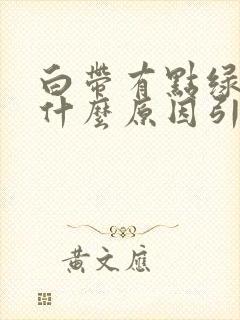 白帶有點綠
什麼原因引
黃文應